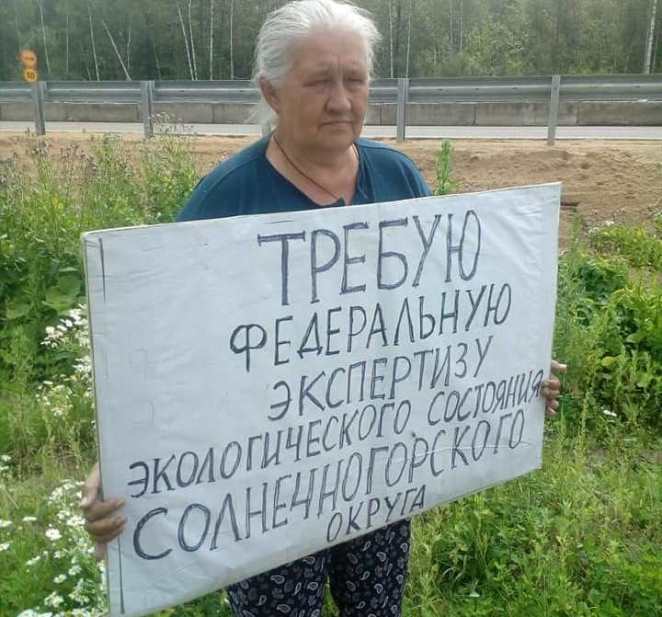 ТРЕБУЮ
ФЕДЕРАЛЬНУЮ
ЭКСПЕРТИЗУ
ЭКОЛОГИЧЕСКОГО СОСТОЯНИЯ
СОЛНЕЧНОГОРСКОГО
ОКРУГА